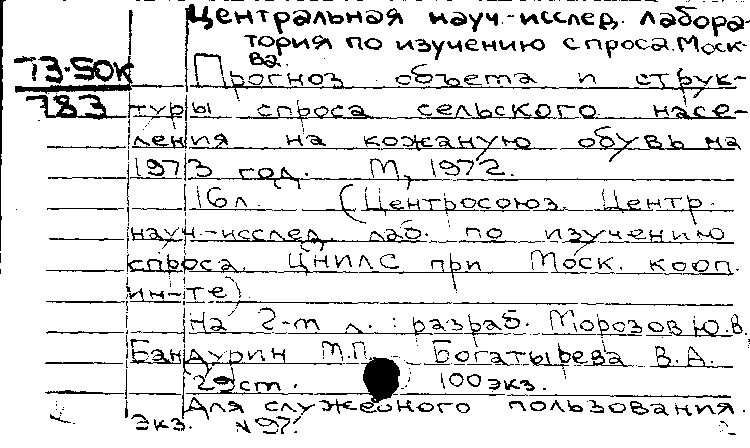 Центральная науч.-исслед. лабора-
тория по изучению спроса. Моск-
ва.
73-50К
783
Прогноз объема и струк-
туры спроса сельского насе-
ления на кожаную обувь на
1973 год. М, 1972.
16 л. (Центросоюз. Центр.
науч.-исслед. лаб. по изучению
спроса. ЦНИЛС при Моск. кооп.
ин-те)
На 2-м л.: разраб. Морозов Ю.В.
Бандурин М.П. Богатырева В.А.
ст. 100 экз.
Для служебного пользования.
Экз. N 97